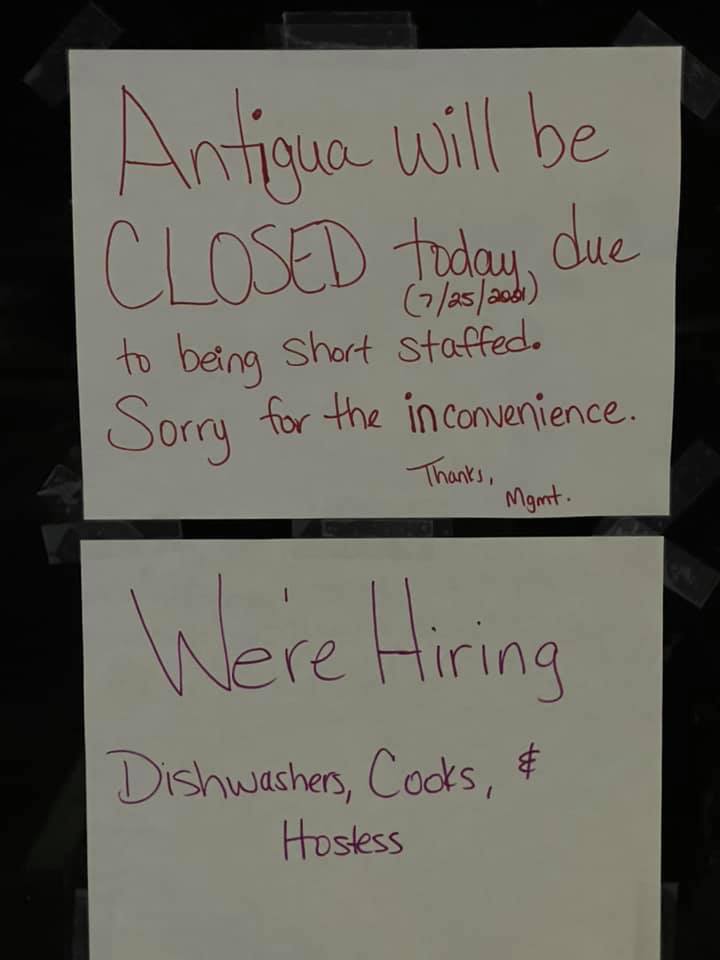 Antigua will be
CLOSED today, due
(7/25/2021)
to being short staffed.
Sorry for the inconvenience.
Thanks,
Mgmt.
We're Hiring
Dishwashers, Cooks, &
Hostess